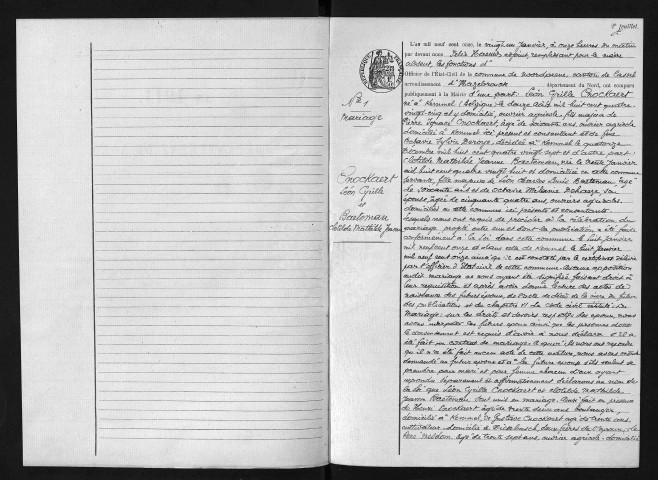 1er feuillet.
L'an mil neuf cent onze, le vingt un Janvier, à onze heures du matin
par devant nous, Félix adjoint, remplissant pour le maire
absent, les fonctions d'
Officier de l'État-Civil de la commune de Noordpeene canton de Cassel
arrondissement d'Hazebrouck département du Nord, ont comparu
publiquement à la Maison d'une part: Léon Cyrille Cnockaert
né à Kemmel (Belgique) le douze Août mil huit cent quatre
vingt-cinq et y domicilié, ouvrier agricole, fils majeur de
Pierre Ignace Cnockaert, âgé de soixante ans ouvrier agricole
domicilié à Kemmel ici présent et consentant et de feue
Octavie Sylvie décédée à Kemmel le quatorze
mil huit cent quatre vingt sept et d'autre part:
Clotilde Mathilde Jeanne Baeteman, née le trente Janvier
mil huit cent quatre vingt huit et domiciliée en cette commune
servante, fille majeure de Léon Charles Louis Baeteman âgé
de soixante ans et de Octavie Mélanie son
épouse âgée de cinquante quatre ans ouvriers agricoles
domiciliés en cette commune ici présents et consentants
Lesquels nous ont requis de procéder à la célébration du
mariage projeté entre eux et dont la publication a été faite
conformément à la loi dans cette commune le huit Janvier
mil neuf cent onze et dans celle de Kemmel le huit Janvier
mil neuf cent onze ainsi qu'il est constaté par le certificat délivré
par l'officier d'Etat civil de cette commune. Aucune opposition
audit mariage ne nous ayant été signifiée faisant droit à
leur réquisition et après avoir donné lecture des actes de
naissance des futurs époux, de l'acte de décès de la mère du futur
des publications et du chapitre VI du code civil intitulé: Du
Mariage: sur les droits et devoirs respectifs des époux, nous
avons interpellé les futurs époux ainsi que les personnes dont
le consentement est requis d'avoir à nous déclarer s'il a
été fait un contrat de mariage: à quoi ils nous ont répondu
qu'il n'a été fait aucun acte de cette nature, nous avons ensuite
demandé au futur époux et à la future épouse s'ils veulent se
prendre pour mari et pour femme chacun d'eux ayant
répondu séparément et affirmativement déclarons au nom de
la loi que Léon Cyrille Cnockaert et Clotilde Mathilde
Jeanne Baeteman sont unis en mariage. Ainsi fait en présence
de Henri Cnockaert âgé de trente deux ans boulanger,
domicilié à Kemmel, de Gustave Cnockaert âgé de trente ans,
cultivateur domicilié à Dickebusch, deux frères de l'époux, de
âgé de trente sept ans, ouvrier agricole domicilié
N° 1
Mariage
Cnockaert
Léon Cyrille
et
Baeteman
Clotilde Mathilde Jeanne